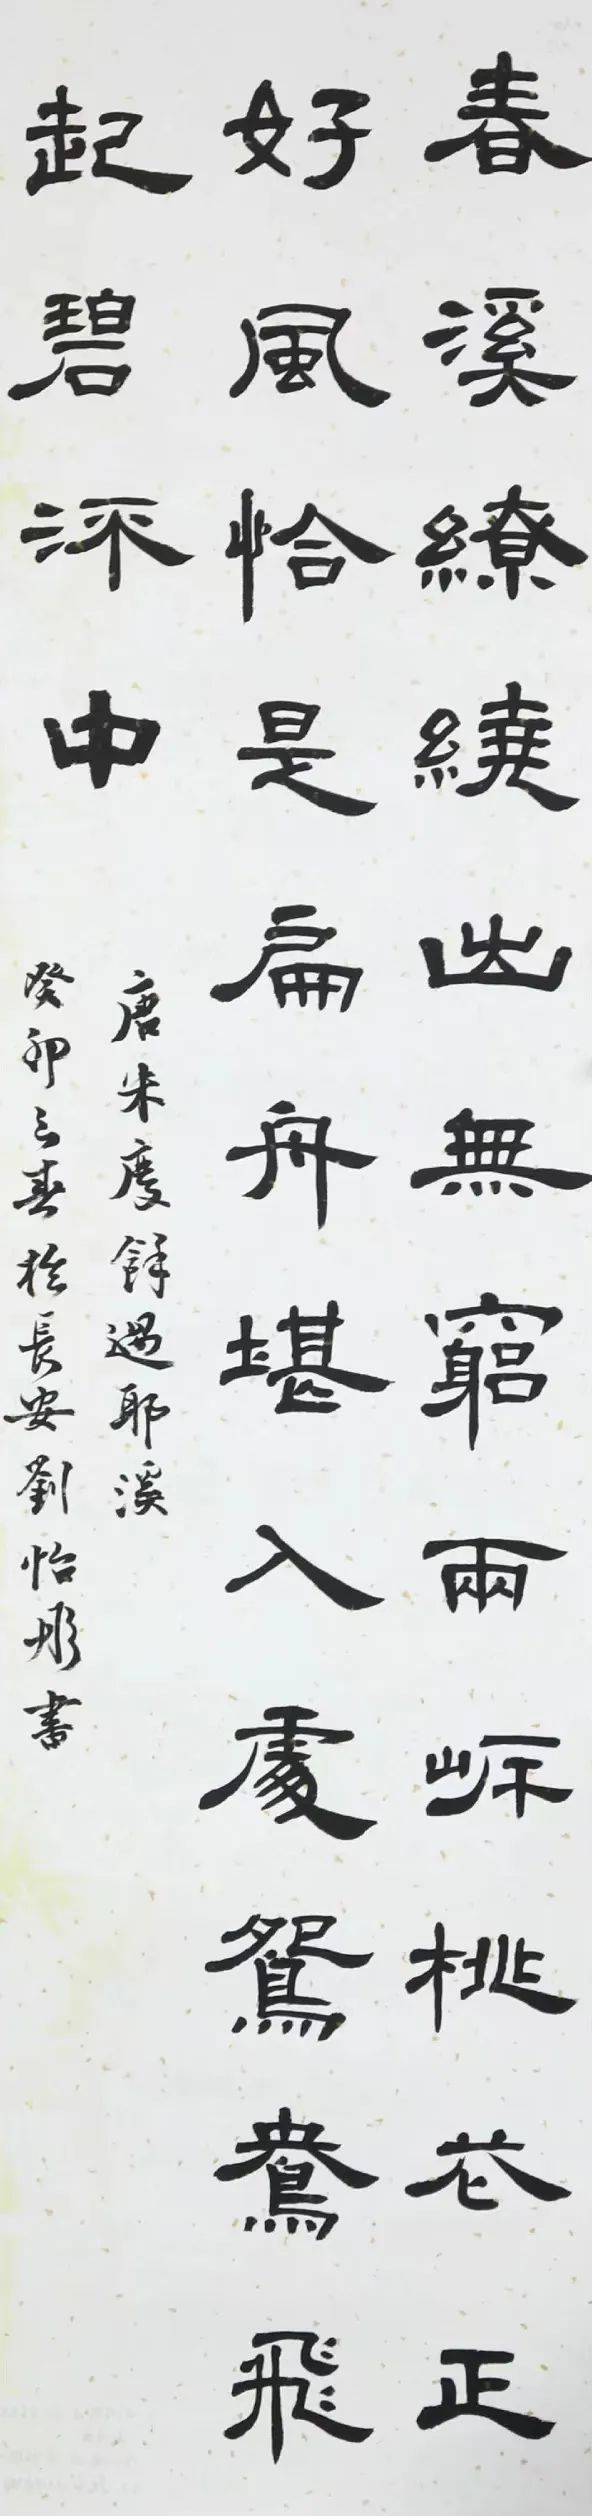 春溪繚繞出無窮兩岍桃花正
好風恰是扁舟堪入處鴛鴦飛
起碧流中
唐朱慶餘過耶溪
癸卯之春於長安劉怡彤書